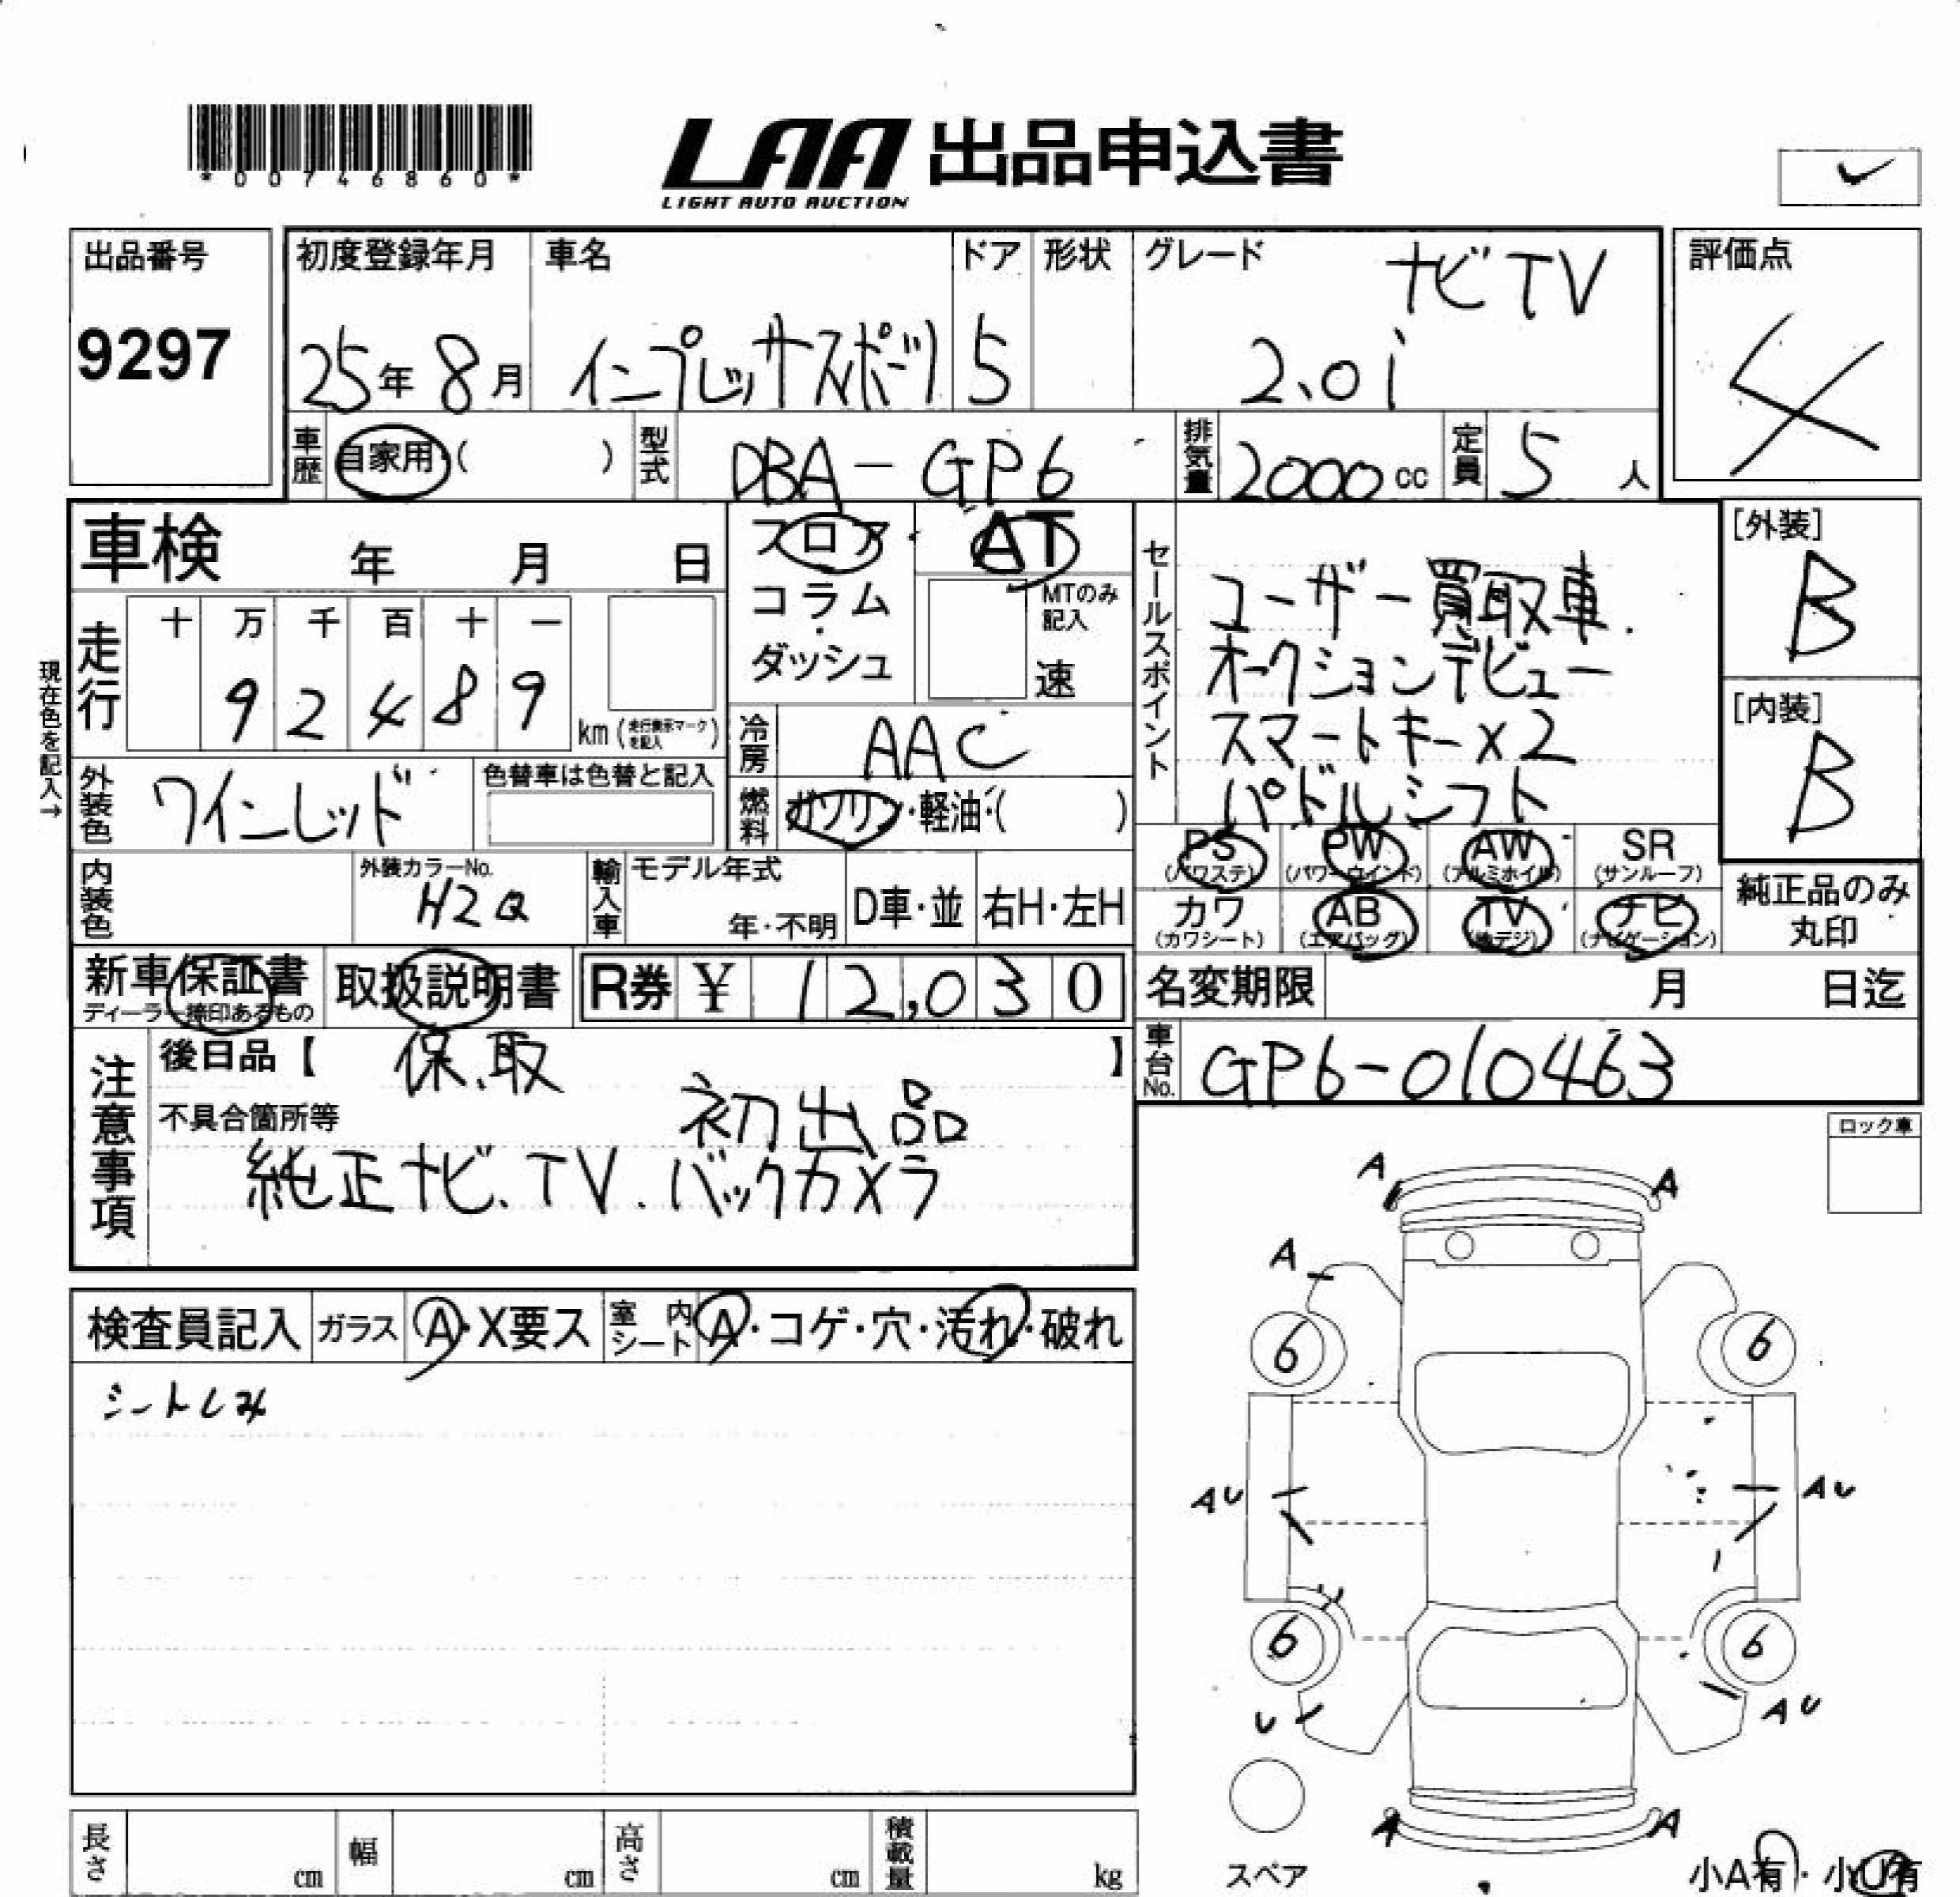 *00746860*
LAA 出品申込書
LIGHT AUTO AUCTION
出品番号
9297
初度登録年月
25年8月
車名
インプレッサスポーツ
ドア
5
形状
グレード
ナビTV
2.0i
評価点
4
車歴
自家用 ( )
型式
DBA-GP6
排気量
2000 cc
定員
5 人
車検 年 月 日
フロア・
コラム
・
ダッシュ
AT
MTのみ
記入
速
セールスポイント
ユーザー買取車.
オークションデビュー
スマートキー×2
パドルシフト
[外装]
B
[内装]
B
現在色を記入→
走行
十 万 千 百 十 一
9 2 4 8 9
km (走行表示マークを記入)
冷房
AAC
外装色
ワインレッド
色替車は色替と記入
燃料
ガソリン・軽油・( )
PS
(パワステ)
PW
(パワーウインド)
AW
(アルミホイル)
SR
(サンルーフ)
カワ
(カワシート)
AB
(エアバッグ)
TV
(地デジ)
ナビ
(ナビゲーション)
純正品のみ
丸印
内装色
外装カラーNo.
H2Q
輸入車
モデル年式
年・不明
D車・並
右H・左H
新車保証書
ディーラー捺印あるもの
取扱説明書
R券 ¥ 12,030
名変期限 月 日迄
車台No.
GP6-010463
注意事項
後日品【 保.取 】
不具合箇所等
初出品
純正ナビ、TV、バックカメラ
ロック車
検査員記入
ガラス
A・X要ス
室内シート
A・コゲ・穴・汚れ・破れ
シートしみ
A A
A
6 6
AU AU
6 6
U AU
A A
スペア
小A有・小U有
長さ cm
幅 cm
高さ cm
積載量 kg